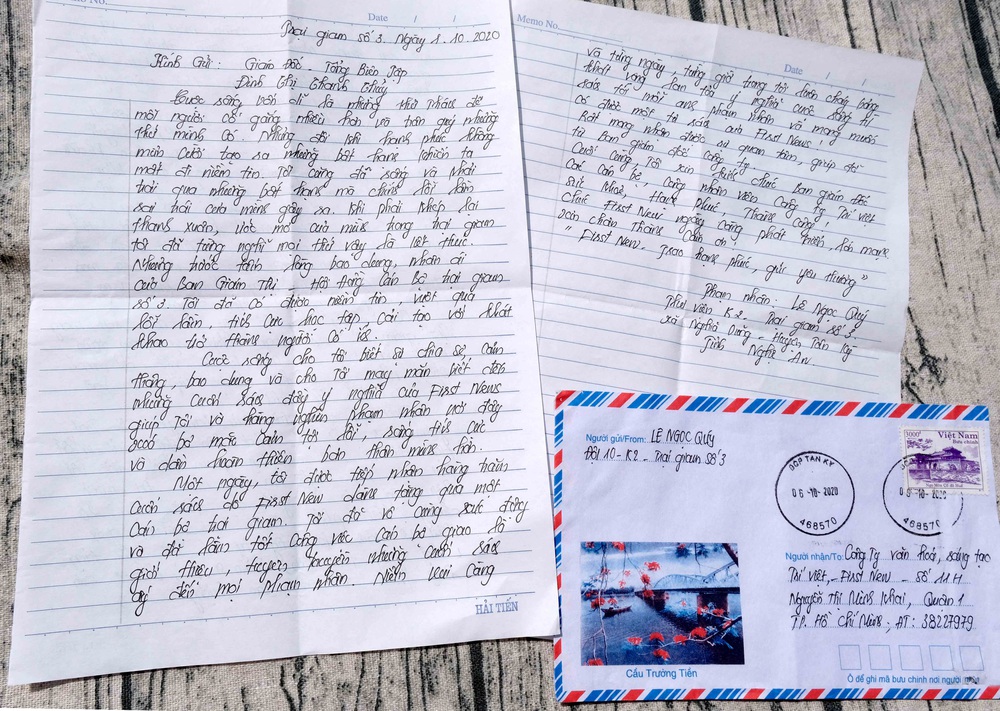 Memo No.
Date / /
Trại giam số 3. Ngày 1.10.2020
Kính Gửi: Giám Đốc - Tổng Biên Tập
Đinh Thị Thanh Thủy
Cuộc sống vốn dĩ là những thử thách để
mỗi người cố gắng nhiều hơn và trân quý những
thứ mình có. Nhưng đôi khi hạnh phúc không
mỉm cười tạo ra những bất hạnh khiến ta
mất đi niềm tin. Tôi cũng đã sống và phải
trải qua những bất hạnh mà chính lỗi lầm
sai trái của mình gây ra. Khi phải khép lại
thanh xuân, ước mơ của mình trong trại giam
tôi đã từng nghĩ mọi thứ vậy là kết thúc.
Nhưng trước tấm lòng bao dung, nhân ái
của Ban Giám Thị - Hội đồng cán bộ trại giam
số 3. Tôi đã có được niềm tin, vượt qua
lỗi lầm, tích cực học tập, cải tạo với khát
khao trở thành người có ích.
Cuộc sống cho tôi biết sự chia sẻ, cảm
thông, bao dung và cho tôi may mắn biết đến
những cuốn sách đầy ý nghĩa của First News
giúp tôi và hàng nghìn phạm nhân nơi đây
xoá bỏ mặc cảm tội lỗi, sống tích cực
và dần hoàn thiện bản thân mình hơn.
Một ngày, tôi được tiếp nhận hàng trăm
cuốn sách do First New dành tặng qua một
cán bộ trại giam. Tôi đã vô cùng xúc động
và đã làm tốt công việc cán bộ giao là
giới thiệu, tuyên truyền những cuốn sách
ấy đến mọi phạm nhân. Niềm vui càng
HẢI TIẾN
Memo No.
Date / /
và từng ngày, từng giờ trong tôi luôn cháy bỏng
khát vọng lan tỏa ý nghĩa cuộc sống từ
sách tới mọi anh phạm nhân và mong muốn
có được một tủ sách của First News!
Rất mong nhận được sự quan tâm, giúp đỡ
từ Ban giám đốc công ty.
Cuối cùng, tôi xin kính chúc Ban giám đốc
các cán bộ công nhân viên công ty Trí Việt
sức khoẻ, Hạnh phúc, Thành công!
Chúc First New ngày càng phát triển lớn mạnh
Xin chân thành cảm ơn!
"First New - Trao hạnh phúc, gửi yêu thương"
Phạm nhân: Lê Ngọc Quý
Thư viện K2 - Trại giam số 3.
Xã Nghĩa Dũng - Huyện Tân Kỳ
Tỉnh Nghệ An.
Người gửi/From: LÊ NGỌC QUÝ
Đội 10 - K2 - Trại giam số 3
BCP TAN KY
06-10-2020
468570
468570
3000đ
Việt Nam
Bưu chính
Người nhận/To: Công Ty văn hoá, sáng tạo
Trí Việt, - First New - Số 11H
Nguyễn Thị Minh Khai, Quận 1
TP. Hồ Chí Minh; ĐT: 38227979.
Cầu Trường Tiền
Ô để ghi mã bưu chính nơi người